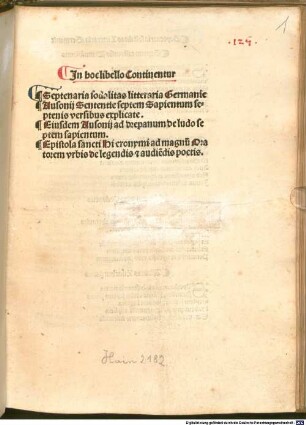 1
.129.
In hoc libello Continentur
¶ Septenaria sodalitas litteraria Germanie
¶ Ausonij Sententie septem Sapientum se-
ptenis versibus explicate.
¶ Eiusdem Ausonij ad drepanum de ludo se
ptem sapientum.
¶ Epistola sancti Hieronymi ad magnũ Ora
torem vrbis de legendis ⁊ audiẽdis poetis.
Hain 2182